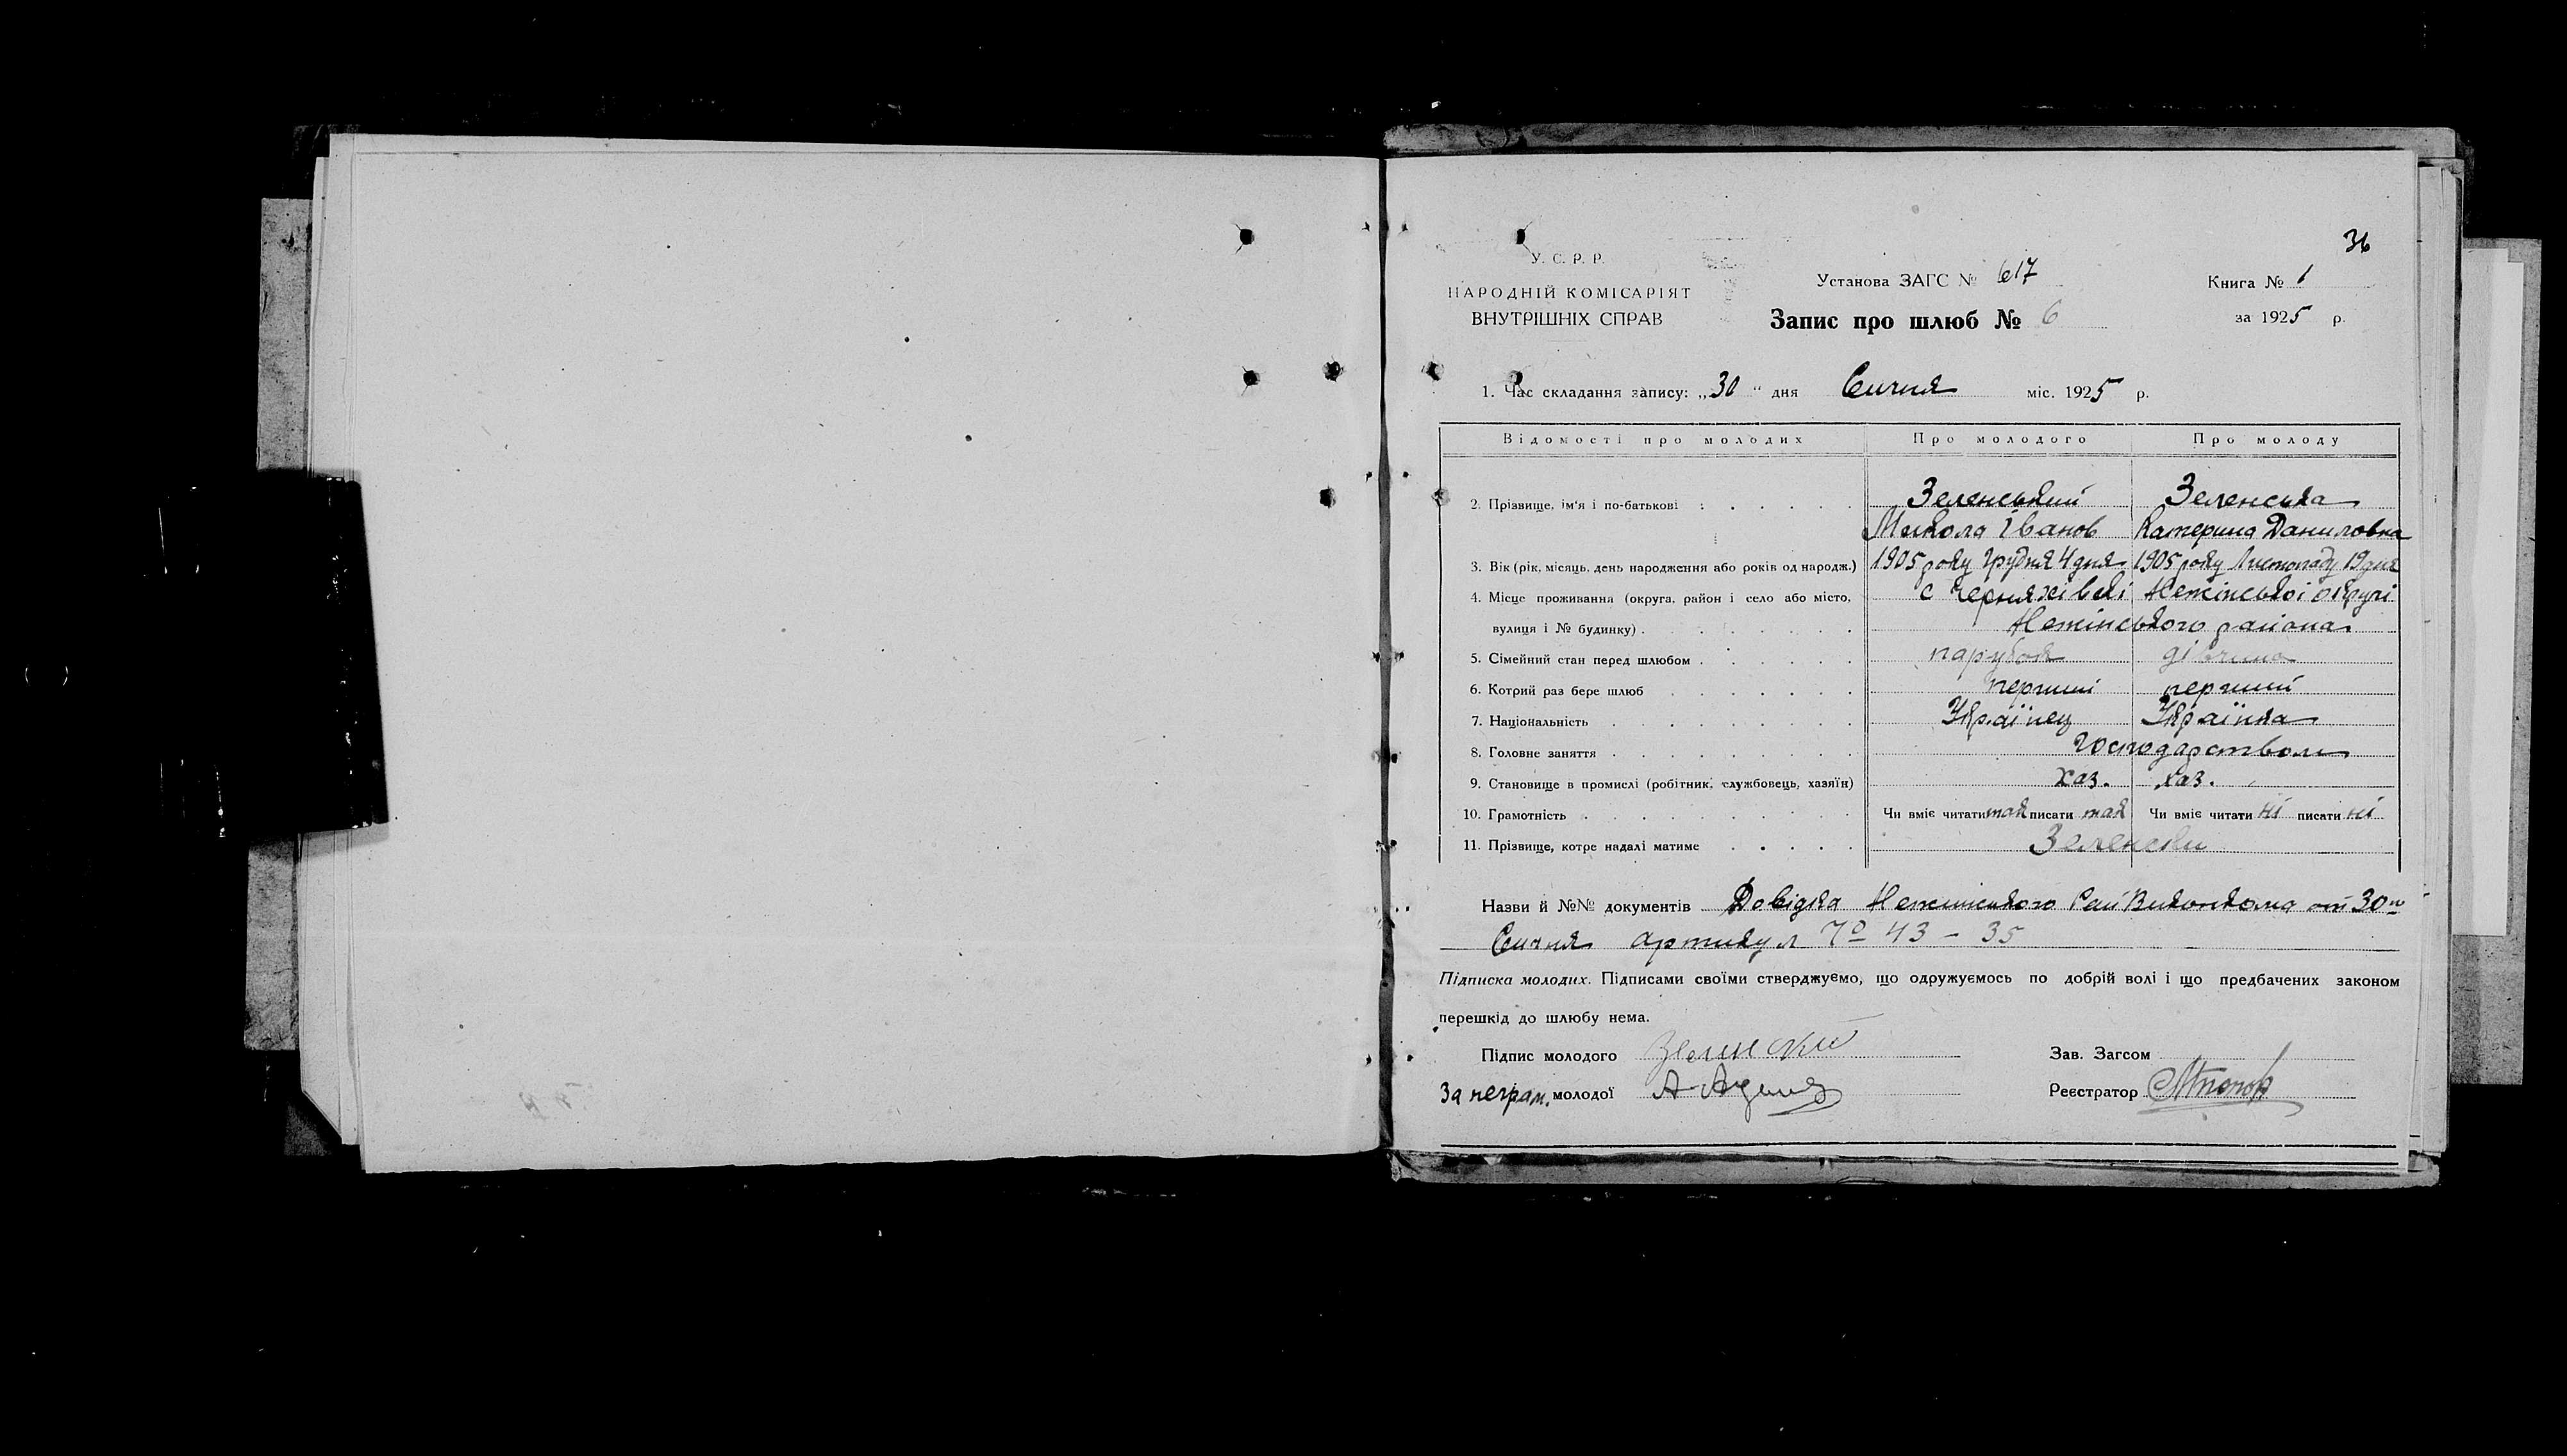 36
У. С. Р. Р.
НАРОДНІЙ КОМІСАРІЯТ
ВНУТРІШНІХ СПРАВ
Установа ЗАГС № 617
Книга № 1
Запис про шлюб № 6
за 1925 р.
1. Час складання запису: „30“ дня Сичня міс. 1925 р.
Відомості про молодих Про молодого Про молоду
2. Прізвище, ім'я і по-батькові Зеленський Зеленська
Микола Іванов Катерина Даниловна
3. Вік (рік, місяць, день народження або років од народж.) 1905 року Грудня 4 дня 1905 року Листопаду 19 дня
4. Місце проживання (округа, район і село або місто, с Черняхівкі Неженської округі
вулиця і № будинку) Неженського района
5. Сімейний стан перед шлюбом парубок дівчина
6. Котрий раз бере шлюб перший перший
7. Національність Українец Українка
8. Головне заняття Господарством
9. Становище в промислі (робітник, службовець, хазяїн) хаз. хаз.
10. Грамотність Чи вміє читати так писати так Чи вміє читати ні писати ні
11. Прізвище, котре надалі матиме Зеленски
Назви й №№ документів Довідка Неженського Рай Виконкома от 30го
Сичня артикул 43 – 35
Підписка молодих. Підписами своїми стверджуємо, що одружуємось по добрій волі і що предбачених законом
перешкід до шлюбу нема.
Підпис молодого Зеленский
Зав. Загсом
За неграм. молодої
Реєстратор